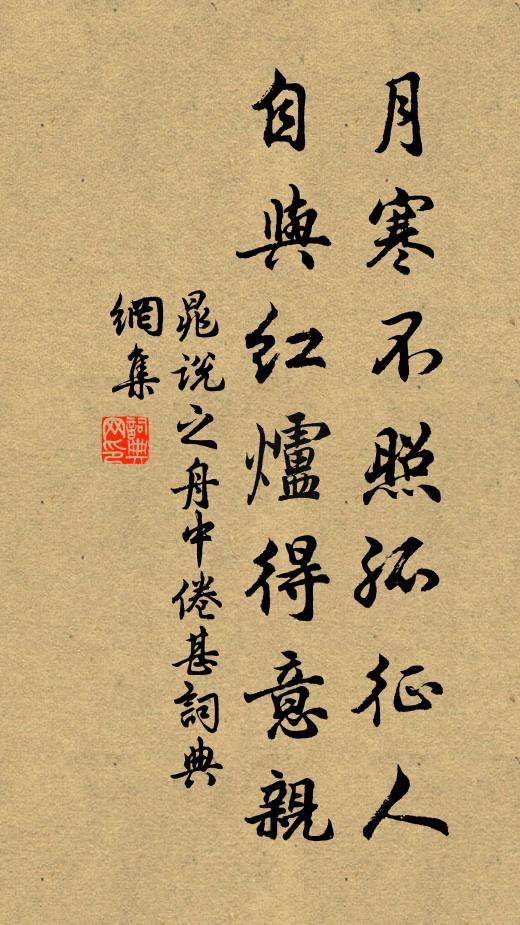 月寒不照孤征人
自與红爐得意親
晁說之舟中倦甚詞典
網集
詞典
网印